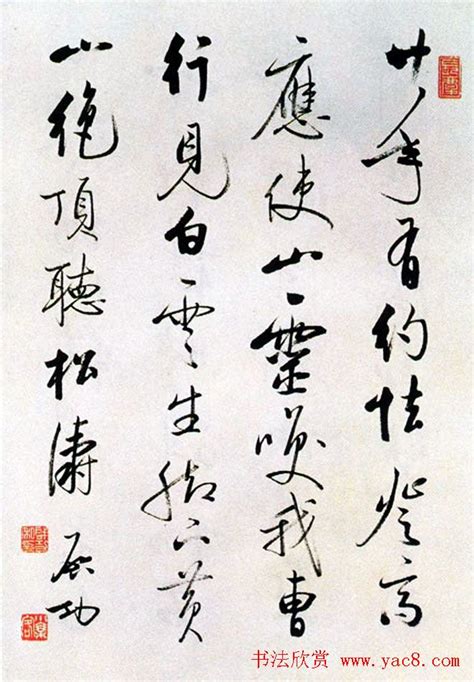 廿年有約怯登高
應使山靈咲我曹
行見白雲生脚下黄
山絶頂聽松濤 启功
书法欣赏 www.yac8.com